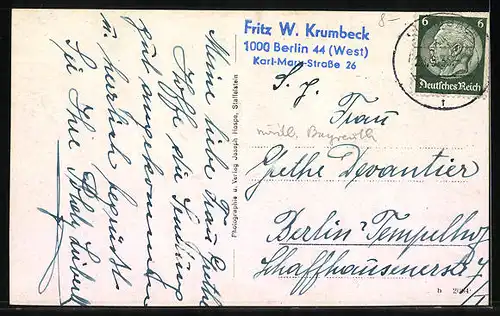 Meine liebe Frau Grethe
Hoffe die Sendung
gut angekommen
u. herzlich begrüßt
Sie Ihre
Photographie u. Verlag Joseph Hospe, Staffelstein
8-
Fritz W. Krumbeck
1000 Berlin 44 (West)
Karl-Marx-Straße 26
6 6
Deutsches Reich
S. H.
Frau
nördl. Bayreuth
Grethe Devantier
Berlin-Tempelhof
Schaffhausenerstr.